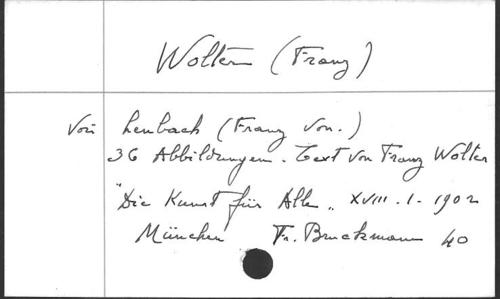 Wolter (Franz)
Voir Lenbach (Franz von.)
36 Abbildungen. Text von Franz Wolter
"Die Kunst für Alle„ XVIII. 1. 1902
München Fr. Bruckmann 40